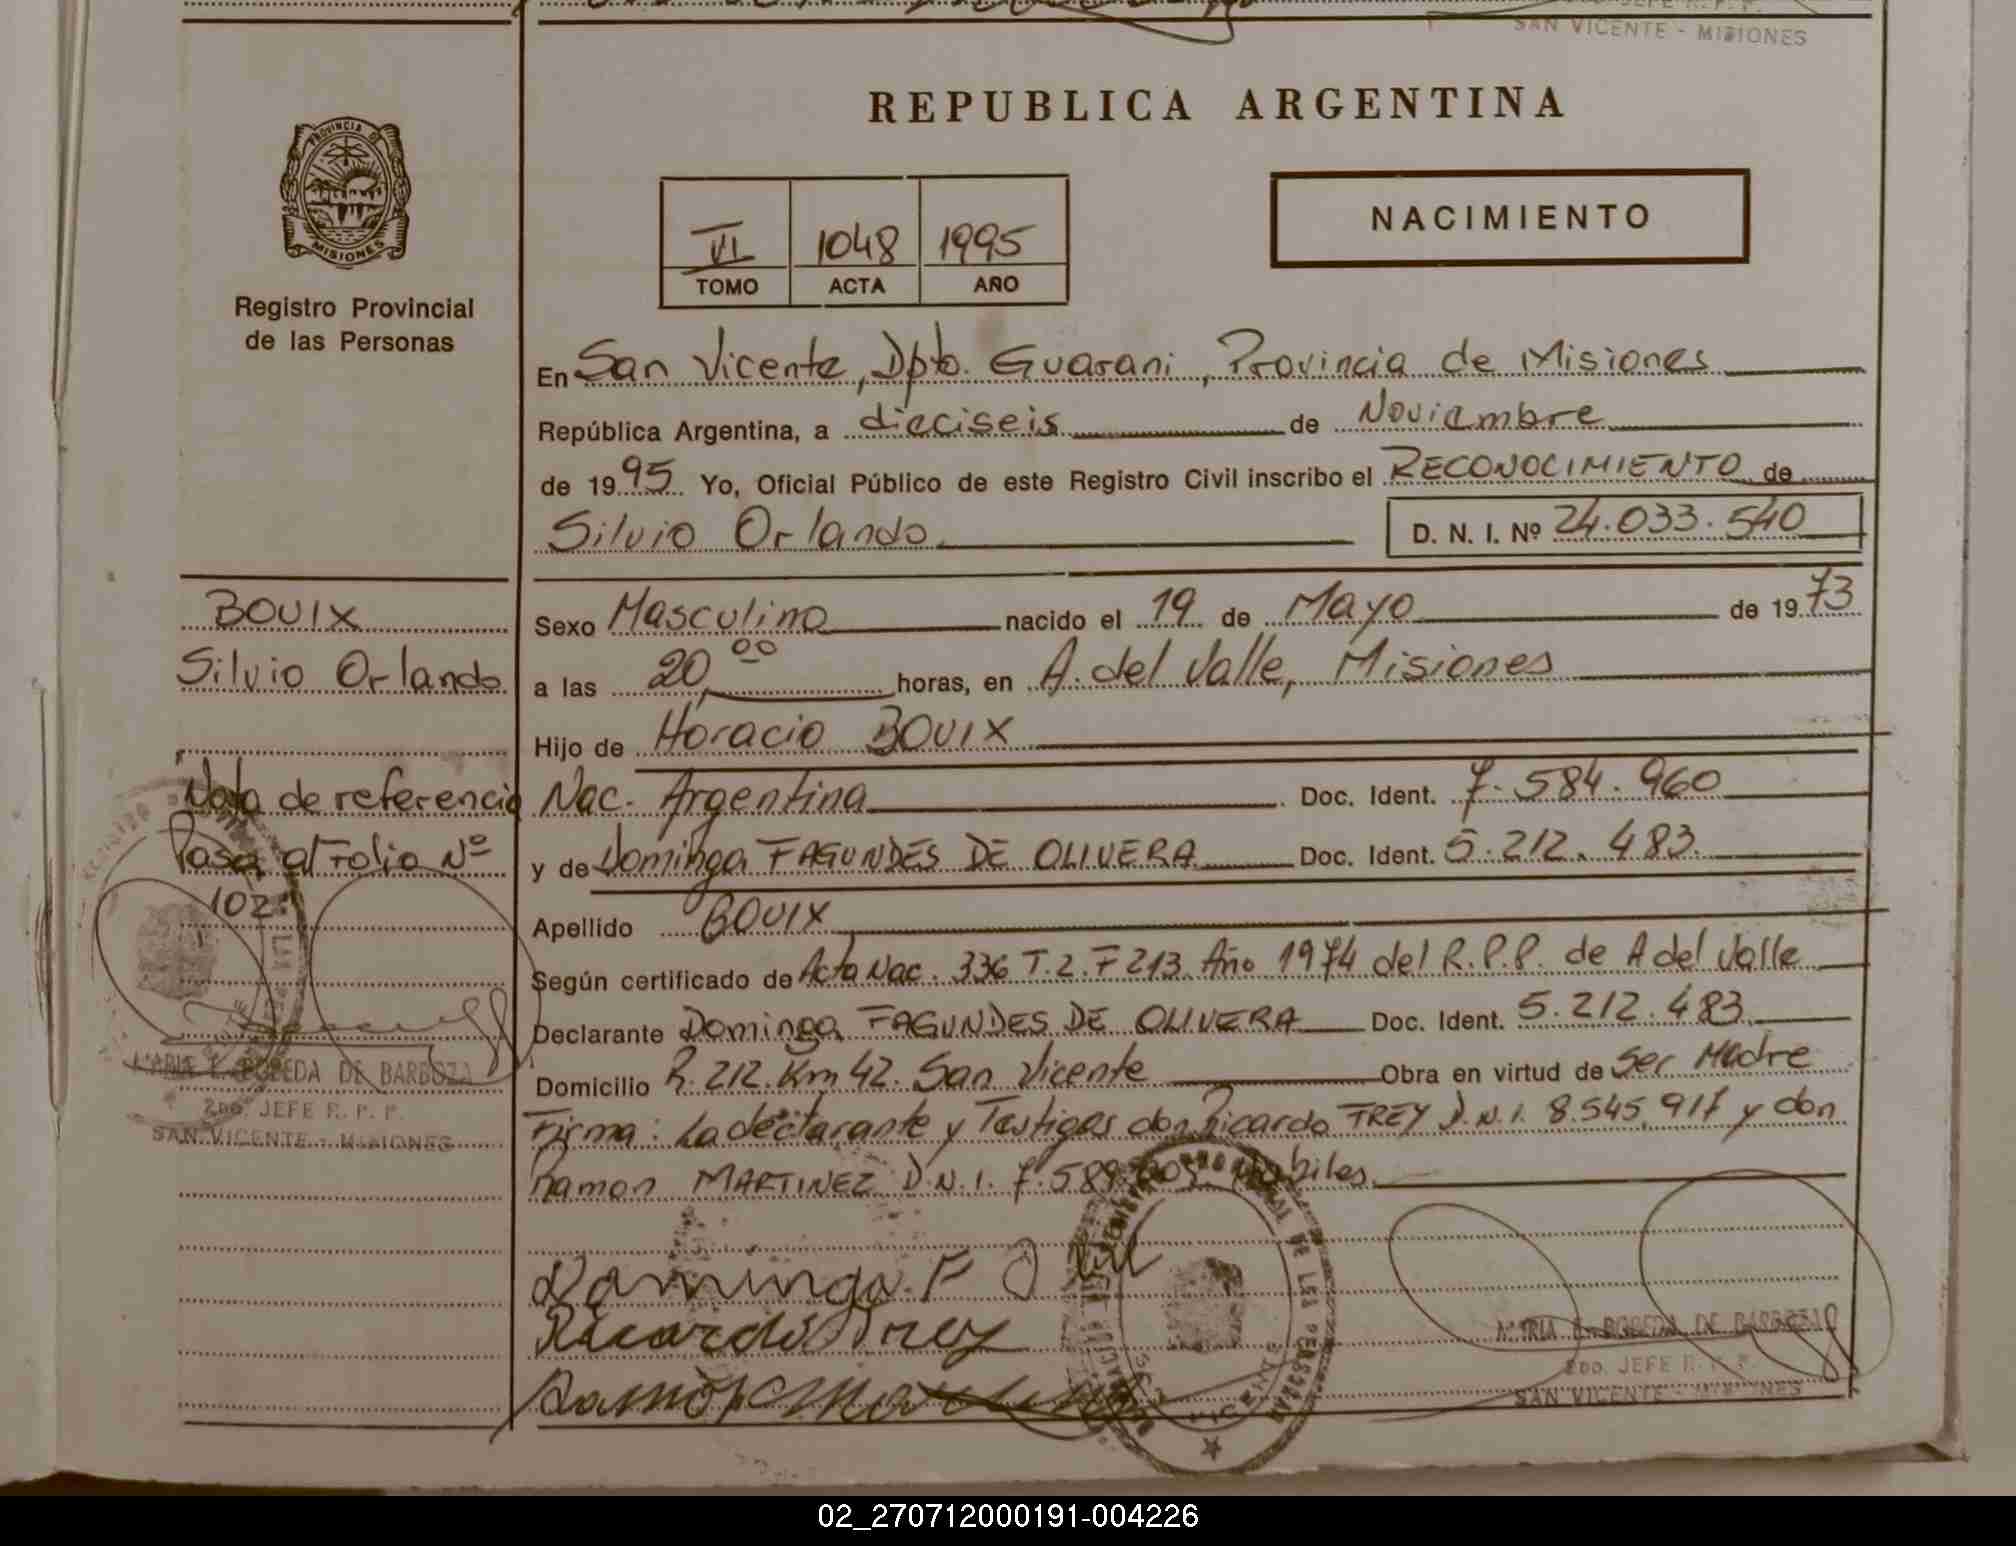 SAN VICENTE - MISIONES
PROVINCIA DE
MISIONES
Registro Provincial
de las Personas
REPUBLICA ARGENTINA
VI 1048 1995
TOMO ACTA AÑO
NACIMIENTO
En San Vicente, Dpto. Guarani, Provincia de Misiones
República Argentina, a dieciseis de Noviembre
de 1995 Yo, Oficial Público de este Registro Civil inscribo el RECONOCIMIENTO de
Silvio Orlando D. N. I. Nº 24.033.540
BOUIX
Silvio Orlando
Nota de referencia
Pasa al Folio Nº
102
MARIA E. DE BARBOZA
2DO. JEFE R. P. P.
SAN VICENTE - MISIONES
Sexo Masculino nacido el 19 de Mayo de 1973
a las 20,00 horas, en A. del Valle, Misiones
Hijo de Horacio BOUIX
Nac. Argentina Doc. Ident. 7.584.960
y de Dominga FAGUNDES DE OLIVERA Doc. Ident. 5.212.483
Apellido BOUIX
Según certificado de Acta Nac. 336 T.2. F 213 Año 1974 del R.P.P. de A del Valle
Declarante Dominga FAGUNDES DE OLIVERA Doc. Ident. 5.212.483
Domicilio R. 212. Km 42. San Vicente Obra en virtud de Ser Madre
Firma: La declarante y Testigos don Ricardo FREY D.N.I. 8.545.917 y don
Ramon MARTINEZ D.N.I. Habiles.
Dominga F O
Ricardo Frey
Ramón
DE LAS PERSONAS
VICENTE
MARIA E. DE BARBOZA
2DO. JEFE R. P. P.
SAN VICENTE - MISIONES
02_270712000191-004226